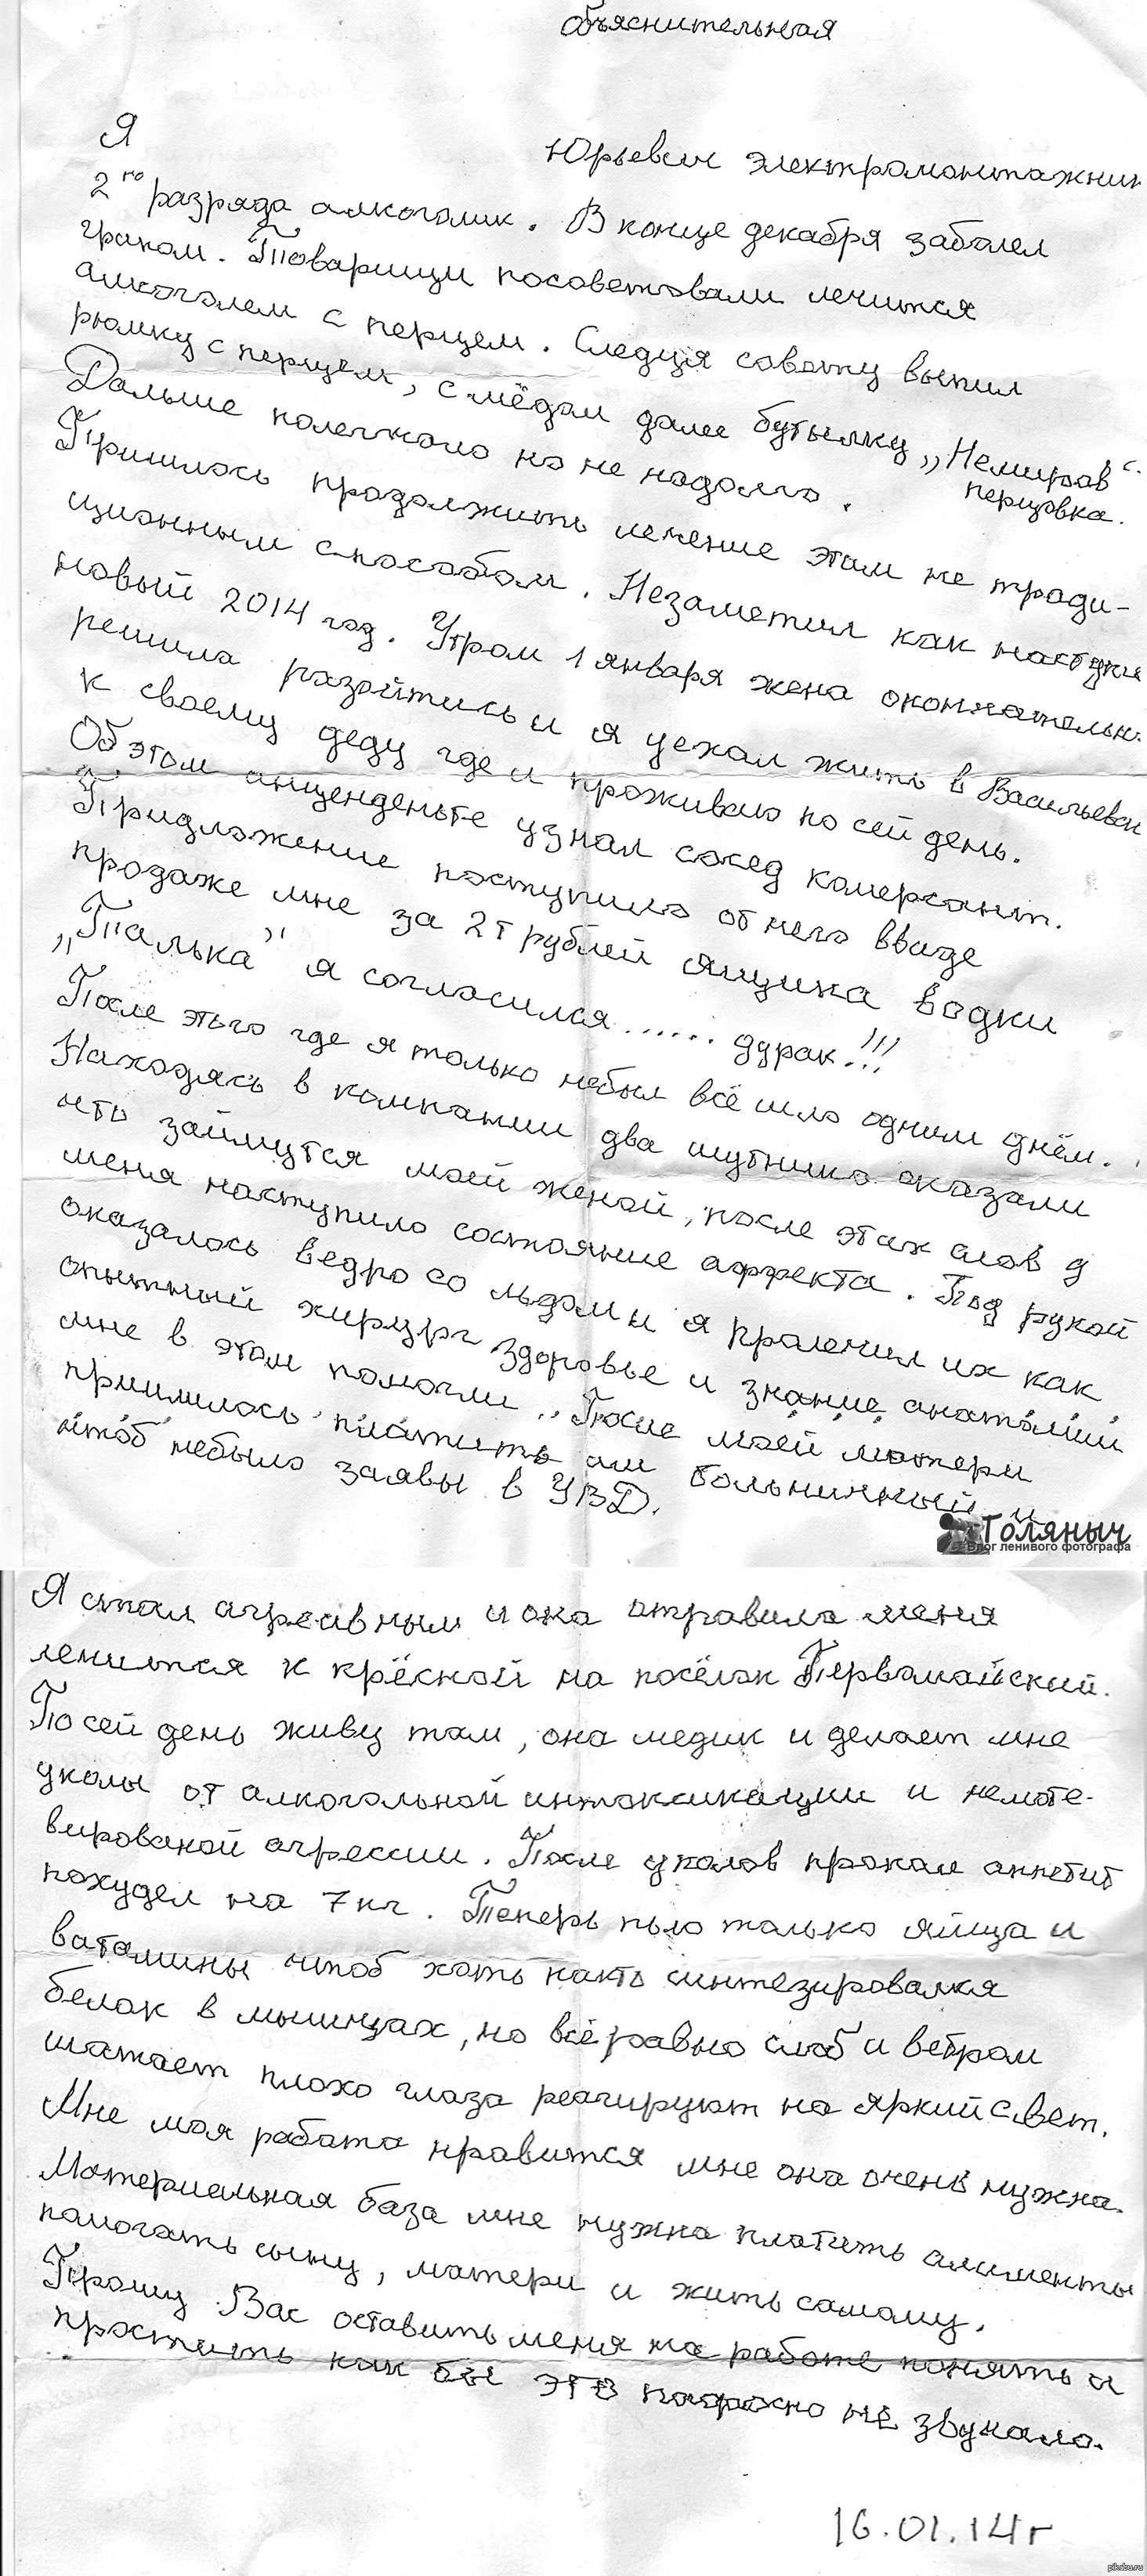 Объяснительная
Я
Юрьевич электромонтажник
2го разряда алкоголик. В конце декабря заболел
грипом. Товарищи посоветовали лечится
алкоголем с перцем. Следуя совету выпил
рюмку с перцем, с мёдом далее бутылку „Немиров“.
перцовка.
Дальше полегчало но не надолго.
Пришлось продолжить лечение этим не тради-
ционным способом. Незаметил как наступил
новый 2014 год. Утром 1 января жена окончательн.
решила разойтись и я уехал жить в Васильевск
к своему деду где и проживаю по сей день.
Об этом инценденьте узнал сосед комерсант.
Придложение поступило от него ввиде
продаже мне за 2т рублей ящика водки
„Талька" я согласился...... дурак!!!
После этого где я только небыл всё шло одним днём.
Находясь в компании два шутника сказали
что займутся моей женой, после этих слов у
меня наступило состояние аффекта. Под рукой
оказалось ведро со льдом и я пролечил их как
опытный хирург здоровье и знание анатомии
мне в этом помогли.. После моей матери
пришлось платить им больничный и
чтоб небыло заявы в УВД.
Голяныч
Блог ленивого фотографа
Я стал агресивным и она отравила меня
лечится к крёсной на посёлок Первомайский.
По сей день живу там, она медик и делает мне
уколы от алкогольной интоксикации и немоте-
вированой агрессии. После уколов пропал аппетит
похудел на 7 кг. Теперь пью только яйца и
ватамины чтоб хоть както синтезировался
белок в мышцах, но всёравно слаб и ветром
шатает плохо глаза реагируют на яркий свет.
Мне моя работа нравится мне она очень нужна.
Материальная база мне нужна платить алименты
помогать сыну, матери и жить самому.
Прошу Вас оставить меня на работе понять и
простить как бы это пафосно не звучало.
16.01.14г
pikabu.ru